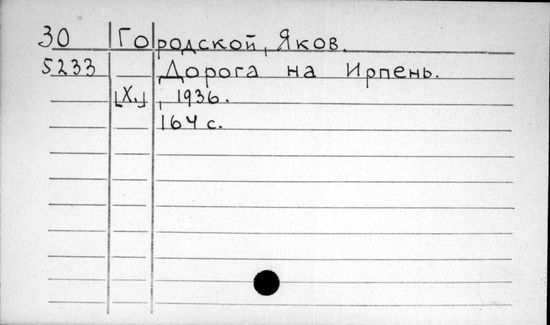 30 Городской, Яков.
5233 Дорога на Ирпень.
[Х.], 1936.
164 с.